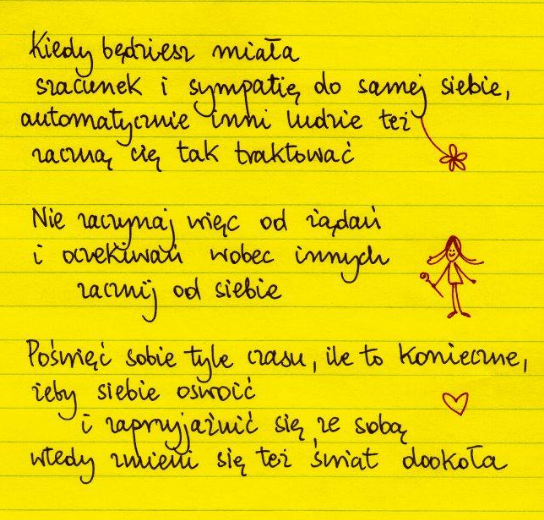 Kiedy będziesz miała
szacunek i sympatię do samej siebie,
automatycznie inni ludzie też
zaczną cię tak traktować
Nie zaczynaj więc od żądań
i oczekiwań wobec innych
zacznij od siebie
Poświęć sobie tyle czasu, ile to konieczne,
żeby siebie oswoić
i zaprzyjaźnić się ze sobą
wtedy zmieni się też świat dookoła